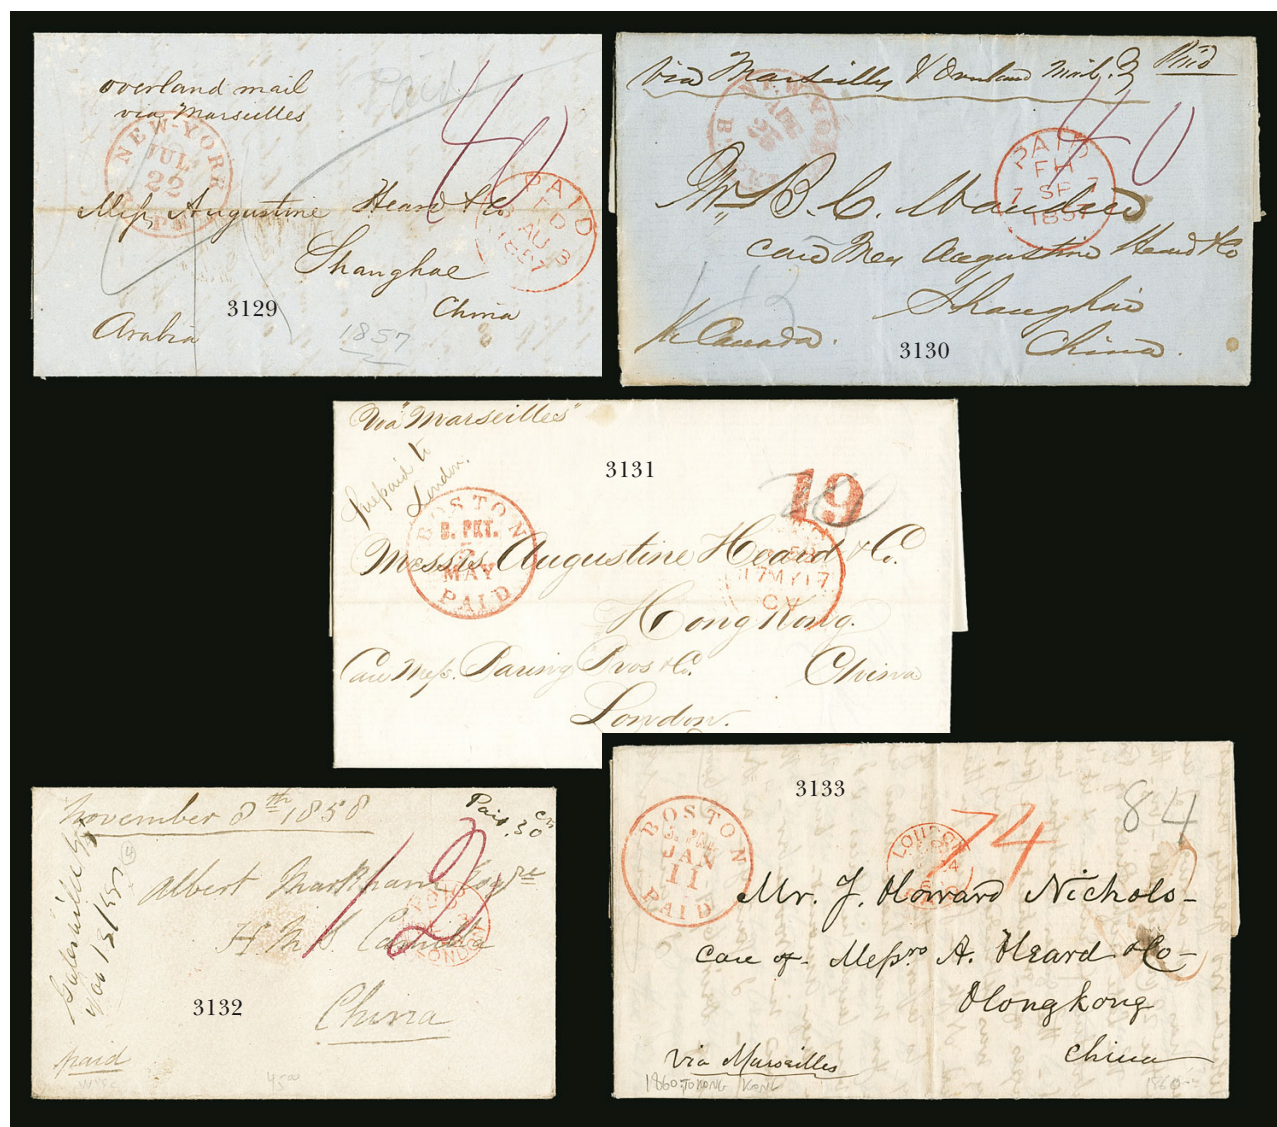 overland mail
via Marseilles
Paid
40
NEW-YORK
JUL
22
PAID
AU 3
1857
Mess. Augustine Heard & Co
Shanghae
China
3129
Arabia
1857
via Marseilles & Overland Mail.
Paid
40
NEW-YORK
PAID
FH
7 SP 7
1857
Mr. B. C.
care Mess Augustine Heard & Co
Shanghai
China.
3130
pr Canada.
Via "Marseilles"
Prepaid to
London.
3131
19
BOSTON
B. PKT.
5
MAY
PAID
17 MY 17
Messrs. Augustine Heard & Co.
Hong Kong.
China
Care Mess. Baring Bros & Co.
London.
November 8th 1858
Paid. 30
cn
12
Albert Markham Esqre
H. M. S. Camilla
China
LONDON
3132
paid
4500
3133
84
74
BOSTON
JAN
11
PAID
LONDON
Mr. J. Howard Nichols-
care of Messrs A. Heard & Co-
Hongkong
China
via Marseilles
1860 TO HONG KONG
1860